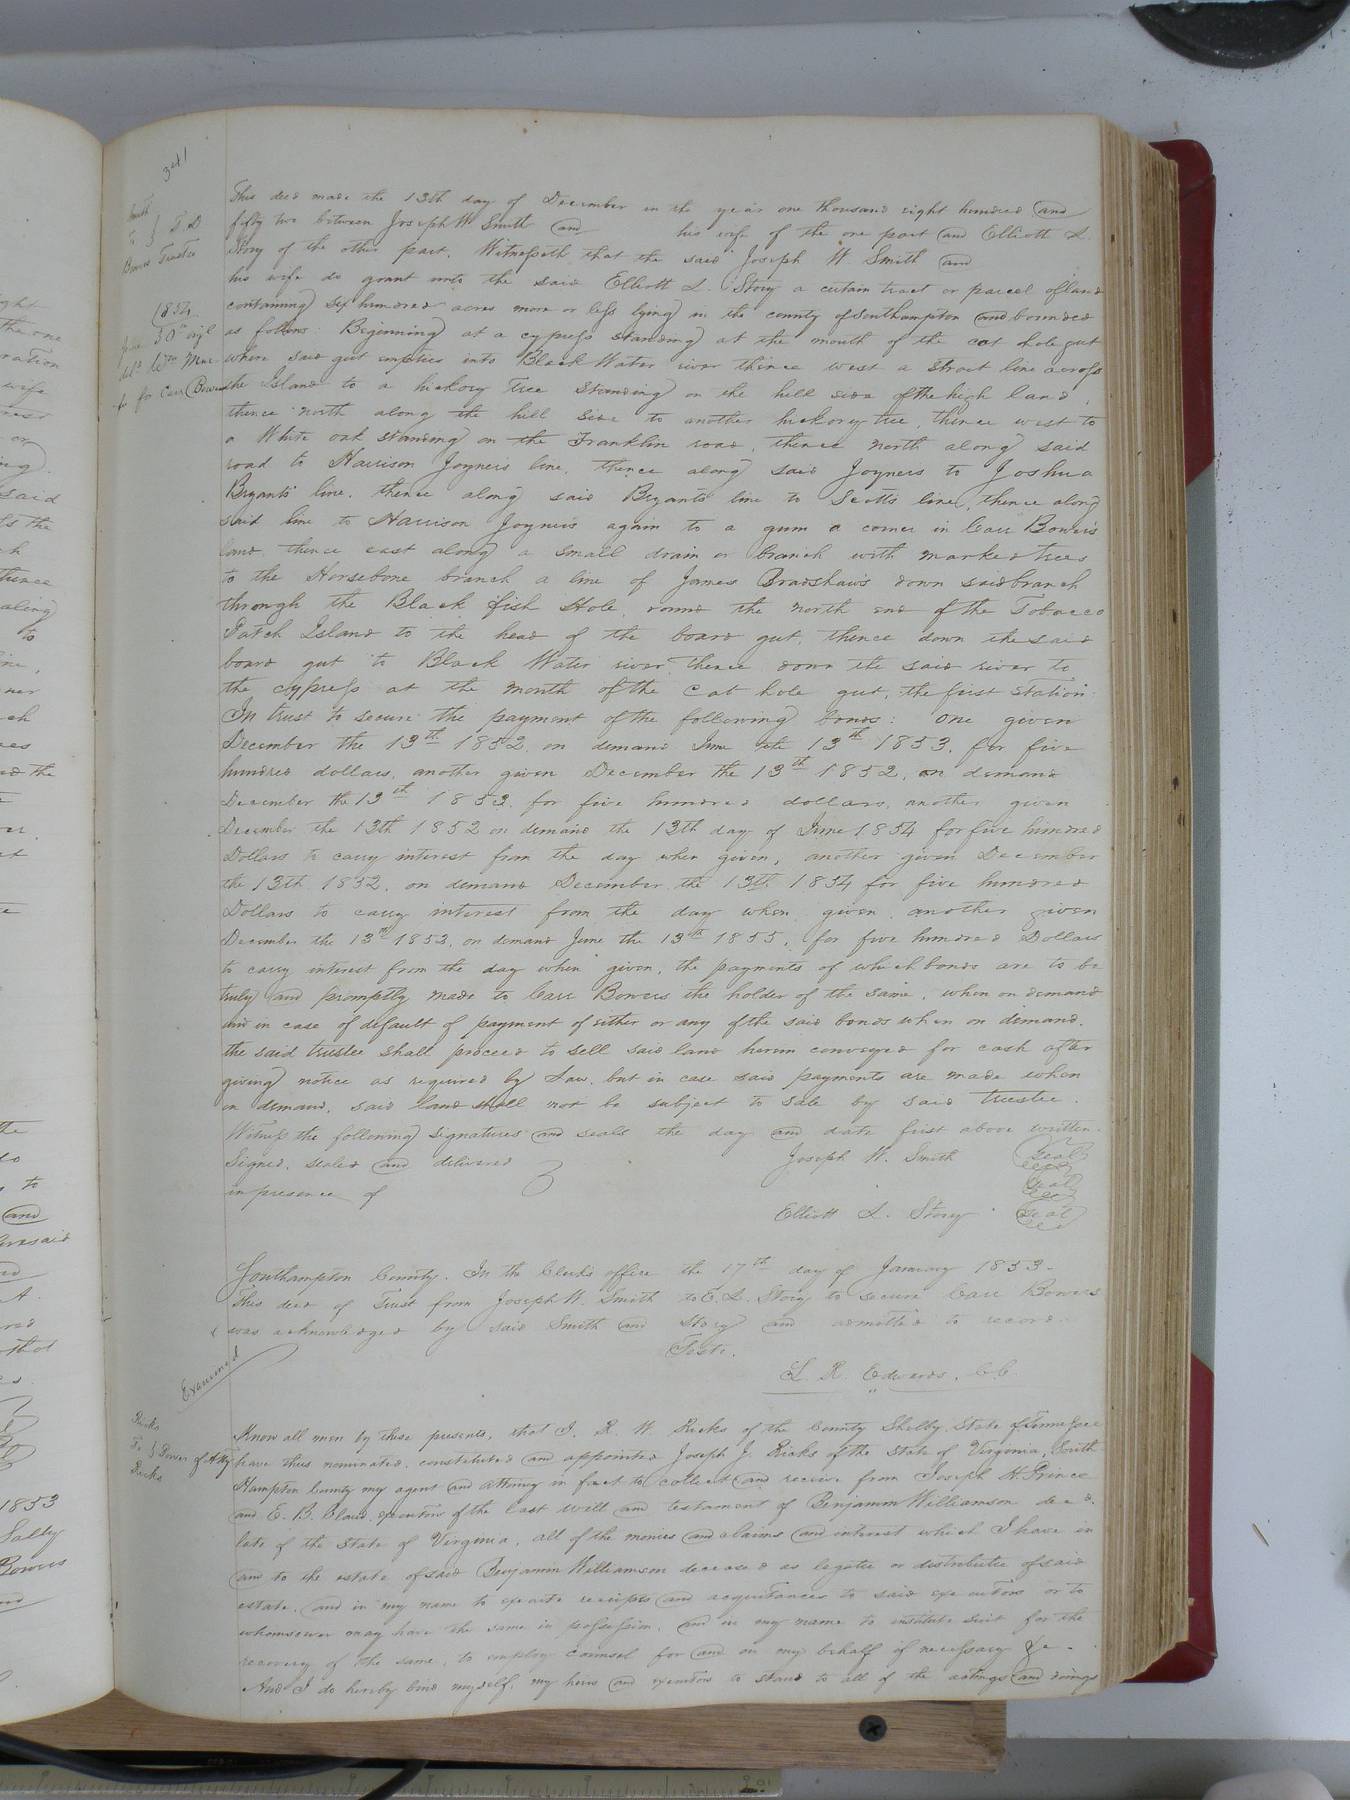 341
Smith
to } T. D
Bowers Trustee
This deed made the 13th day of December in the year one thousand eight hundred and
fifty two between Joseph W Smith and his wife of the one part and Elliott L.
Story of the other part. Witnesseth that the said Joseph W Smith and
his wife do grant unto the said Elliott L. Story a certain tract or parcel of land
containing six hundred acres more or less lying in the county of Southampton and bounded
as follows: Beginning at a cypress standing at the mouth of the cat hole gut
where said gut empties into Black Water river thence west a strait line across
the Island to a hickory tree standing on the hill side of the high land,
thence north along the hill side to another hickory tree, thence west to
a White oak standing on the Franklin road, thence north along said
road to Harrison Joyners line, thence along said Joyners to Joshua
Bryants line, thence along said Bryants line to Scotts line, thence along
said line to Harrison Joyners again to a gum a corner in Carr Bowers
land, thence east along a small drain or branch with marked trees
to the Horsebone branch a line of James Bradshaws down said branch
through the Black fish Hole, round the north end of the Tobacco
Patch Island to the head of the board gut, thence down the said
board gut to Black Water river thence down the said river to
the cypress at the mouth of the cat hole gut, the first station.
In trust to secure the payment of the following bonds: One given
December the 13th 1852, on demand June the 13th 1853, for five
hundred dollars, another given December the 13th 1852, on demand
December the 13th 1853, for five hundred dollars, another given
December the 13th 1852 on demand the 13th day of June 1854 for five hundred
Dollars to carry interest from the day when given, another given December
the 13th 1852, on demand December the 13th 1854 for five hundred
Dollars to carry interest from the day when given, another given
December the 13th 1852, on demand June the 13th 1855, for five hundred Dollars
to carry interest from the day when given, the payments of which bonds are to be
truly and promptly made to Carr Bowers the holder of the same, when on demand
and in case of default of payment of either or any of the said bonds when on demand,
the said trustee shall proceed to sell said land herein conveyed for cash after
giving notice as required by Law, but in case said payments are made when
on demand, said land shall not be subject to sale by said trustee.
Witness the following signatures and seals the day and date first above written.
Signed, sealed and delivered } Joseph W. Smith Seal
in presence of Seal
Elliott L. Story Seal
1854
June 30th
for Carr Bowers
Southampton County. In the Clerk's office the 17th day of January 1853.
This deed of Trust from Joseph W. Smith to E. L. Story to secure Carr Bowers
was acknowledged by said Smith and Story and admitted to record.
Teste.
L. R. Edwards, C C.
Examined
Ricks
To } Power of Atty
Ricks
Know all men by these presents, that I, R. W. Ricks of the County Shelby State of Tennessee
have thus nominated, constituted and appointed Joseph J. Ricks of the State of Virginia, South
Hampton County my agent and attorney in fact to collect and receive from Joseph H. Prince
and E. B. Claud, executors of the last will and testament of Benjamin Williamson decd.
late of the State of Virginia, all of the monies and claims and interest which I have in
and to the estate of said Benjamin Williamson deceased as legatee or distributee of said
estate, and in my name to execute receipts and acquittances to said executors or to
whomsoever may have the same in possession, and in my name to institute suit for the
recovery of the same, to employ counsel for and on my behalf if necessary &c.
And I do hereby bind myself, my heirs and executors to stand to all of the actings and doings